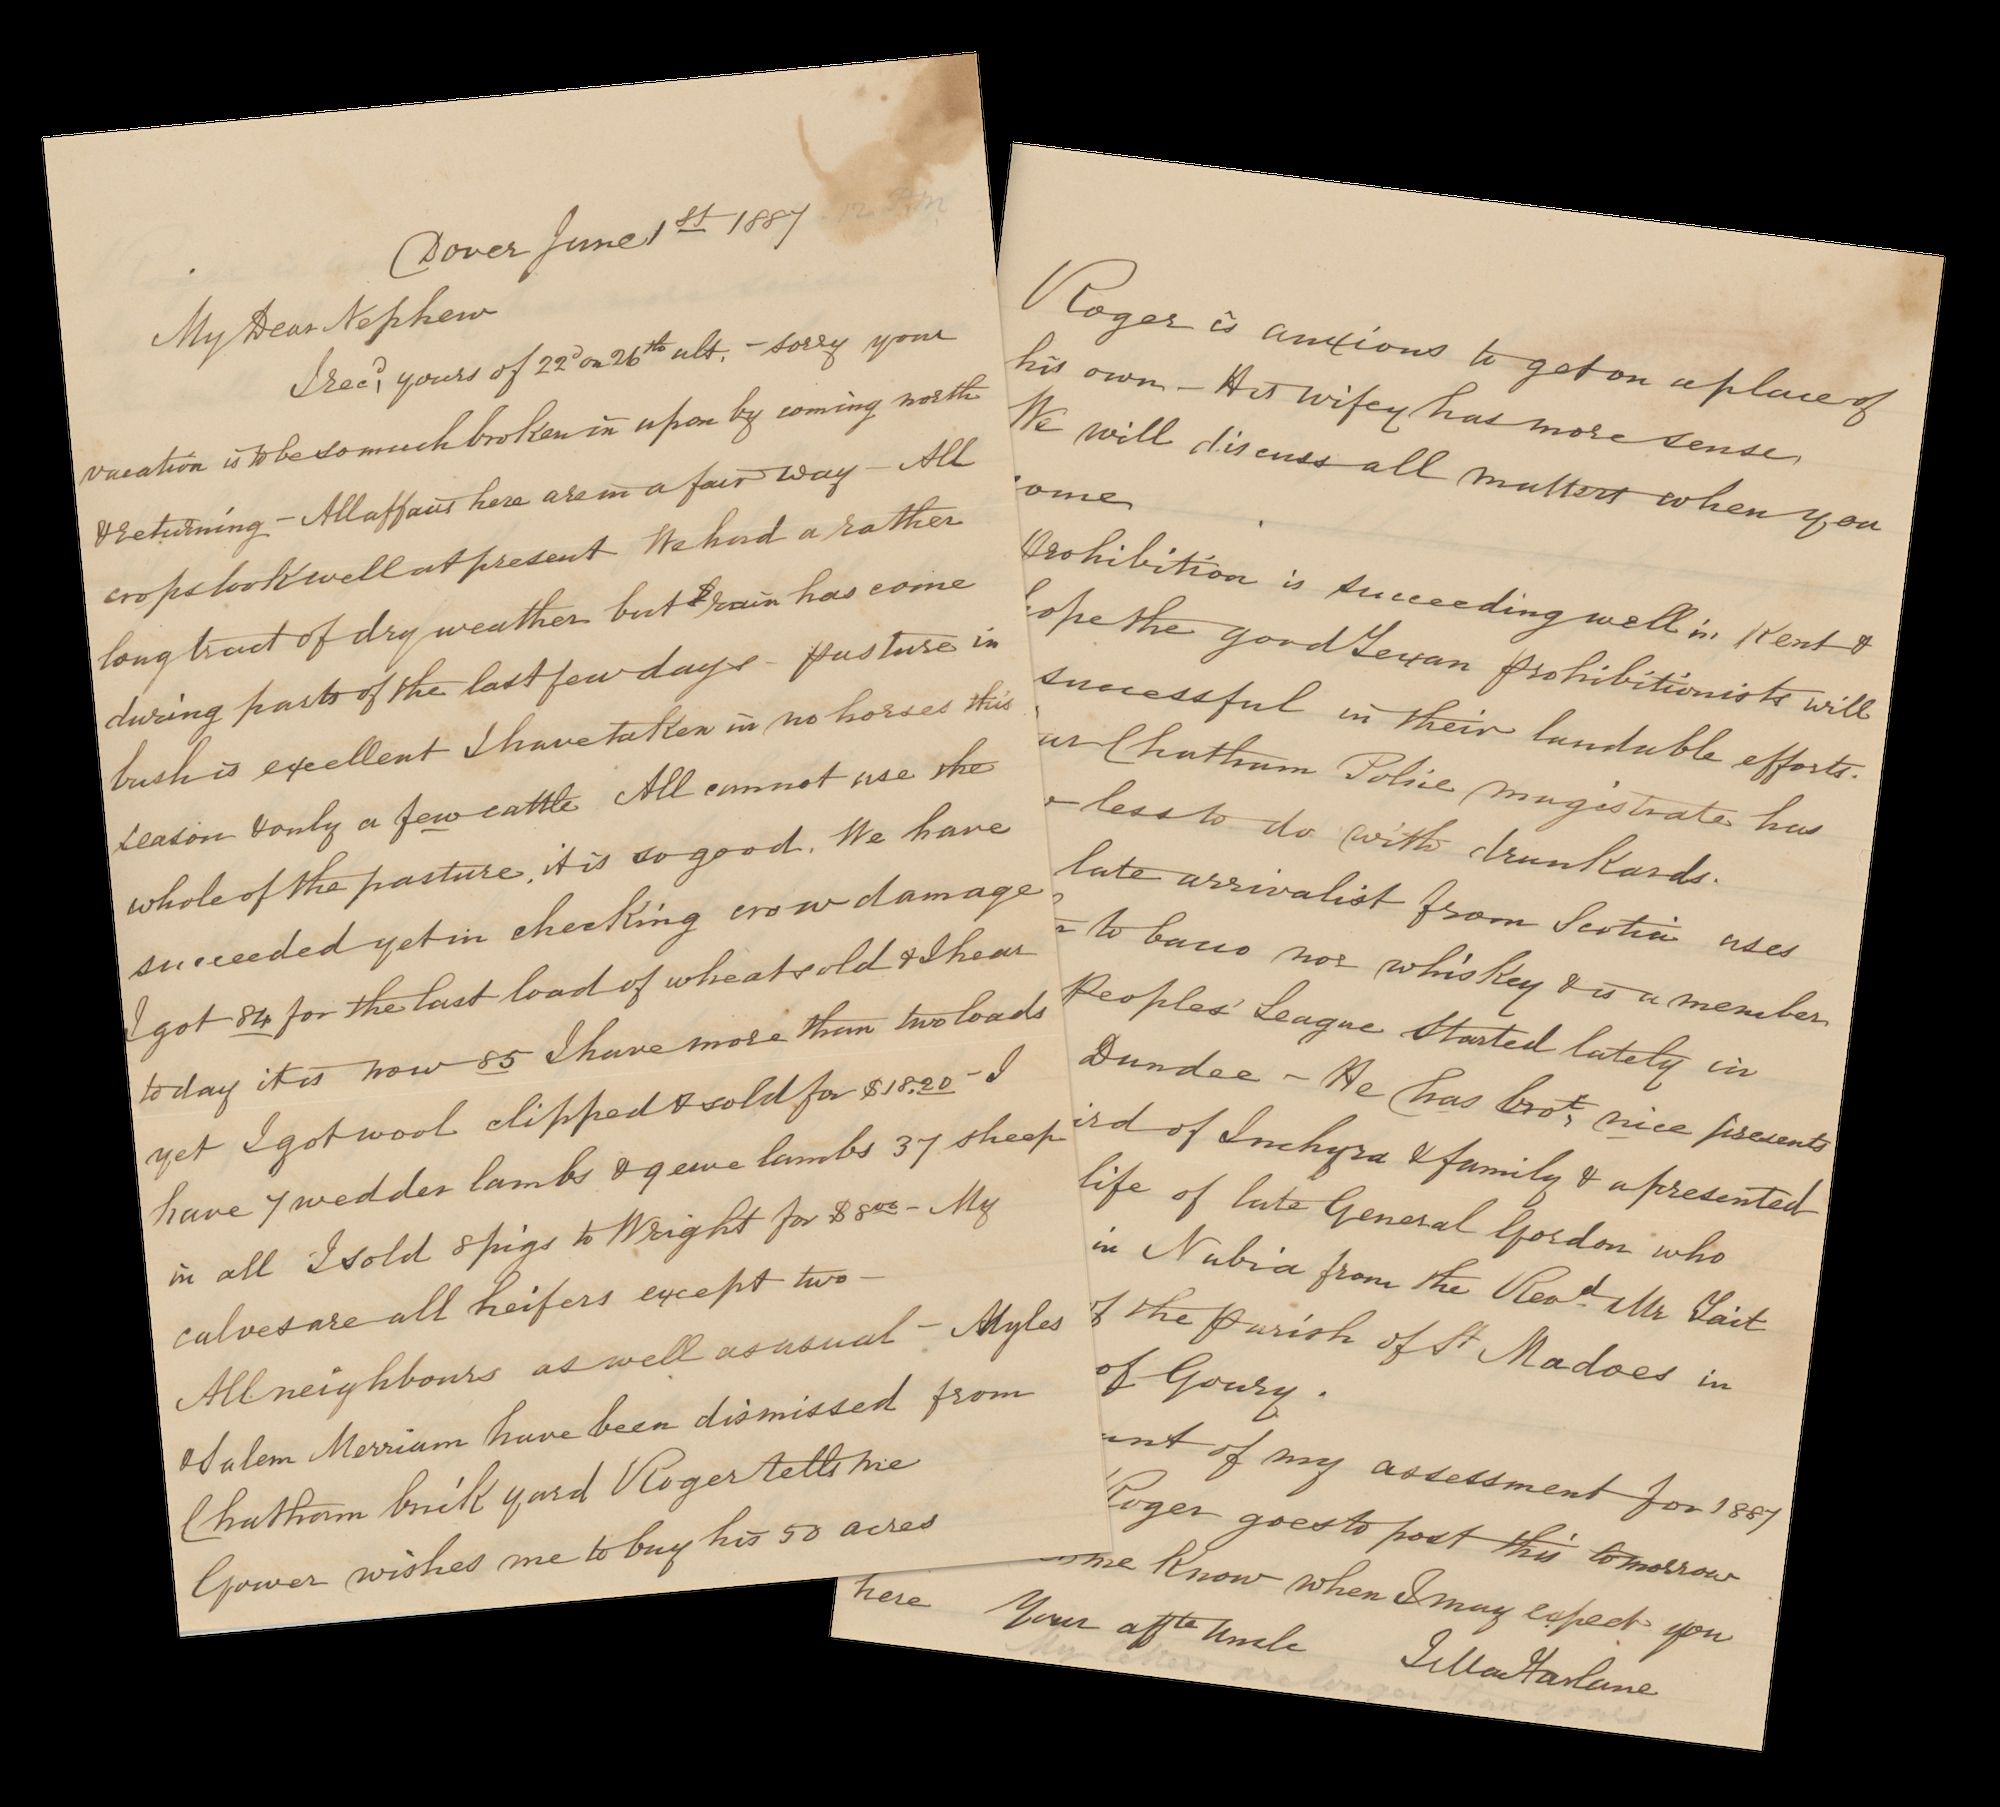 Dover June 1st 1887 12 P.M
My Dear Nephew
I recd, yours of 22d on 26th ult. – sorry your
vacation is to be so much broken in upon by coming north
& returning – All affairs here are in a fair way – All
crops look well at present We had a rather
long tract of dry weather but rain has come
during parts of the last few days – pasture in
bush is excellent I have taken in no horses this
season & only a few cattle All cannot use the
whole of the pasture, it is so good. We have
succeeded yet in checking crow damage
I got 84 for the last load of wheat sold & I hear
today it is now 85 I have more than two loads
yet I got wool clipped & sold for $18.20 – I
have 7 wedder lambs & 9 ewe lambs 37 sheep
in all I sold 8 pigs to Wright for $8.00 – My
calves are all heifers except two –
All neighbours as well as usual – Myles
& Salem Merriam have been dismissed from
Chatham brick yard Roger tells me
Gower wishes me to buy his 50 acres
Roger is anxious to get on a place of
his own – His wifey has more sense,
We will discuss all matters when you
ome
Prohibition is succeeding well in Kent &
hope the good Texan prohibitionists will
successful in their laudable efforts.
ur Chatham Police magistrate has
less to do with drunkards.
late arrivalist from Scotia uses
to bacco nor whiskey & is a member
Peoples' League started lately in
Dundee – He has brot, nice presents
ird of Inchyra & family & a presented
life of late General Gordon who
in Nubia from the Revd. Mr Tait
of the parish of St Madoes in
of Goury.
unt of my assessment for 1887
Roger goes to post this tomorrow
me know when I may expect you
here Your affte Uncle J MacFarlane
My letters are longer than yours